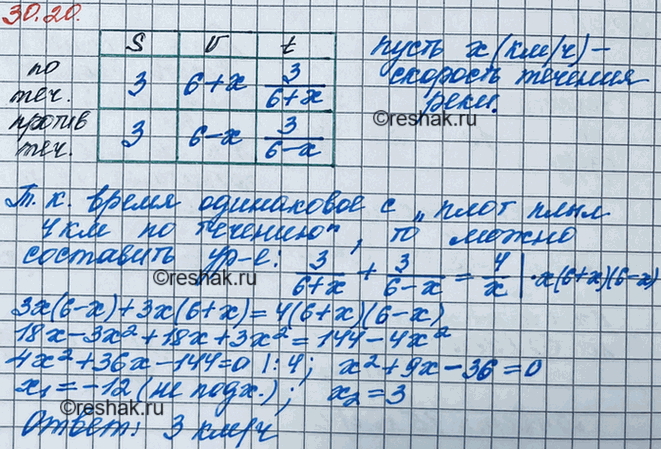 30.20.
S V t
по теч. 3 6+x 3/(6+x)
против теч. 3 6-x 3/(6-x)
пусть x (км/ч) –
скорость течения
реки.
©reshak.ru
Т. к. время одинаковое с „плот плыл
4 км по течению", то можно
составить ур-е: 3/(6+x) + 3/(6-x) = 4/x | ·x(6+x)(6-x)
©reshak.ru
3x(6-x)+3x(6+x)=4(6+x)(6-x)
18x-3x²+18x+3x²=144-4x²
4x²+36x-144=0 |:4; x²+9x-36=0
x₁=-12 (не подх.); x₂=3
©reshak.ru
Ответ: 3 км/ч